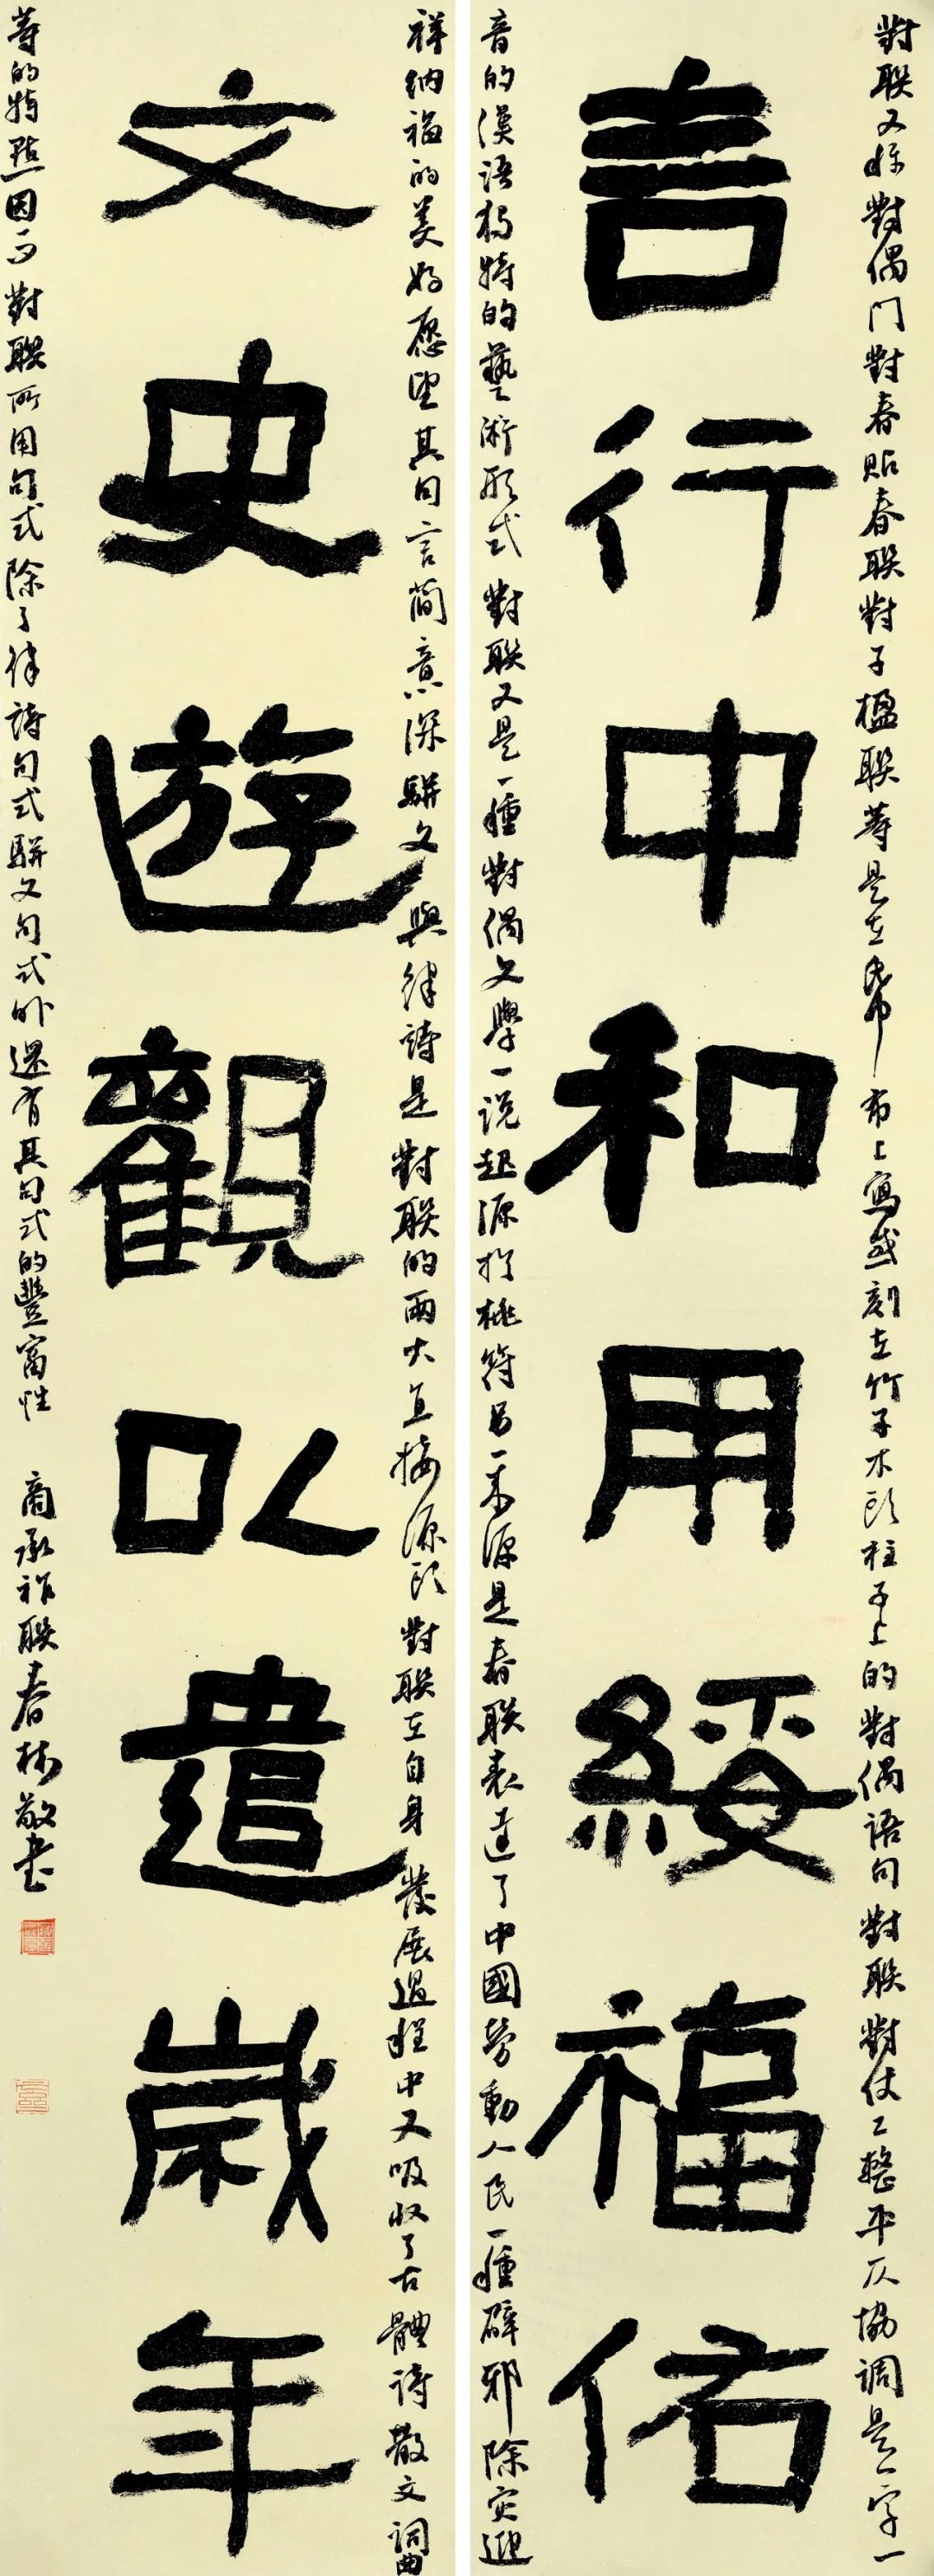 對聯又稱對偶門對春貼春聯對子楹聯等是在紙布上寫或刻在竹子木頭柱子上的對偶語句對聯對仗工整平仄協調是一字一
言行中和用綏福佑
音的漢語獨特的藝術形式對聯又是一種對偶文學一說起源於桃符另一來源是春聯表達了中國勞動人民一種辟邪除災迎
祥納福的美好愿望其句言簡意深駢文與律詩是對聯的兩大直接源頭對聯在自身發展過程中又吸收了古體詩散文詞曲
文史遊觀以遣歲年
等的特點因而對聯所用句式除了律詩句式駢文句式外還有其句式的豐富性 商承祚聯春林敬書